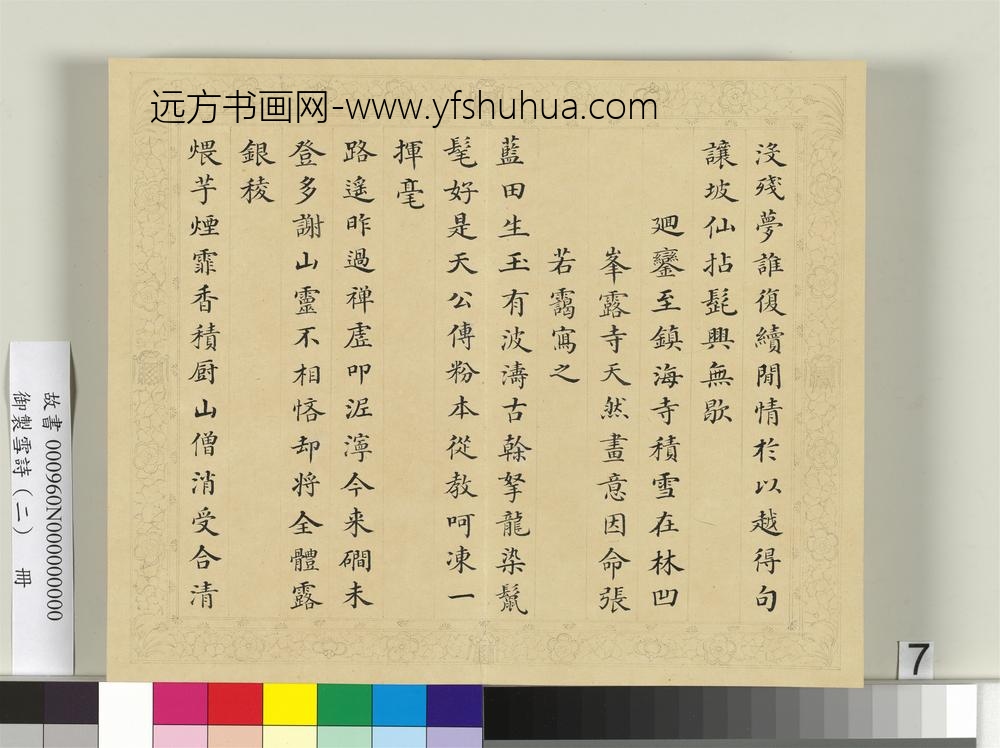 远方书画网-www.yfshuhua.com
沒殘夢誰復續閒情於以越得句
讓坡仙拈髭興無歇
迴鑾至鎮海寺積雪在林凹
峯露寺天然畫意因命張
若靄寫之
藍田生玉有波濤古榦拏龍染鬣
髦好是天公傳粉本從教呵凍一
揮毫
路遙昨過禅虗叩泥濘今来磵未
登多謝山靈不相悋却将全體露
銀稜
煨芋煙霏香積厨山僧消受合清
故書 000960N000000000
御製雪詩(二) 冊
7